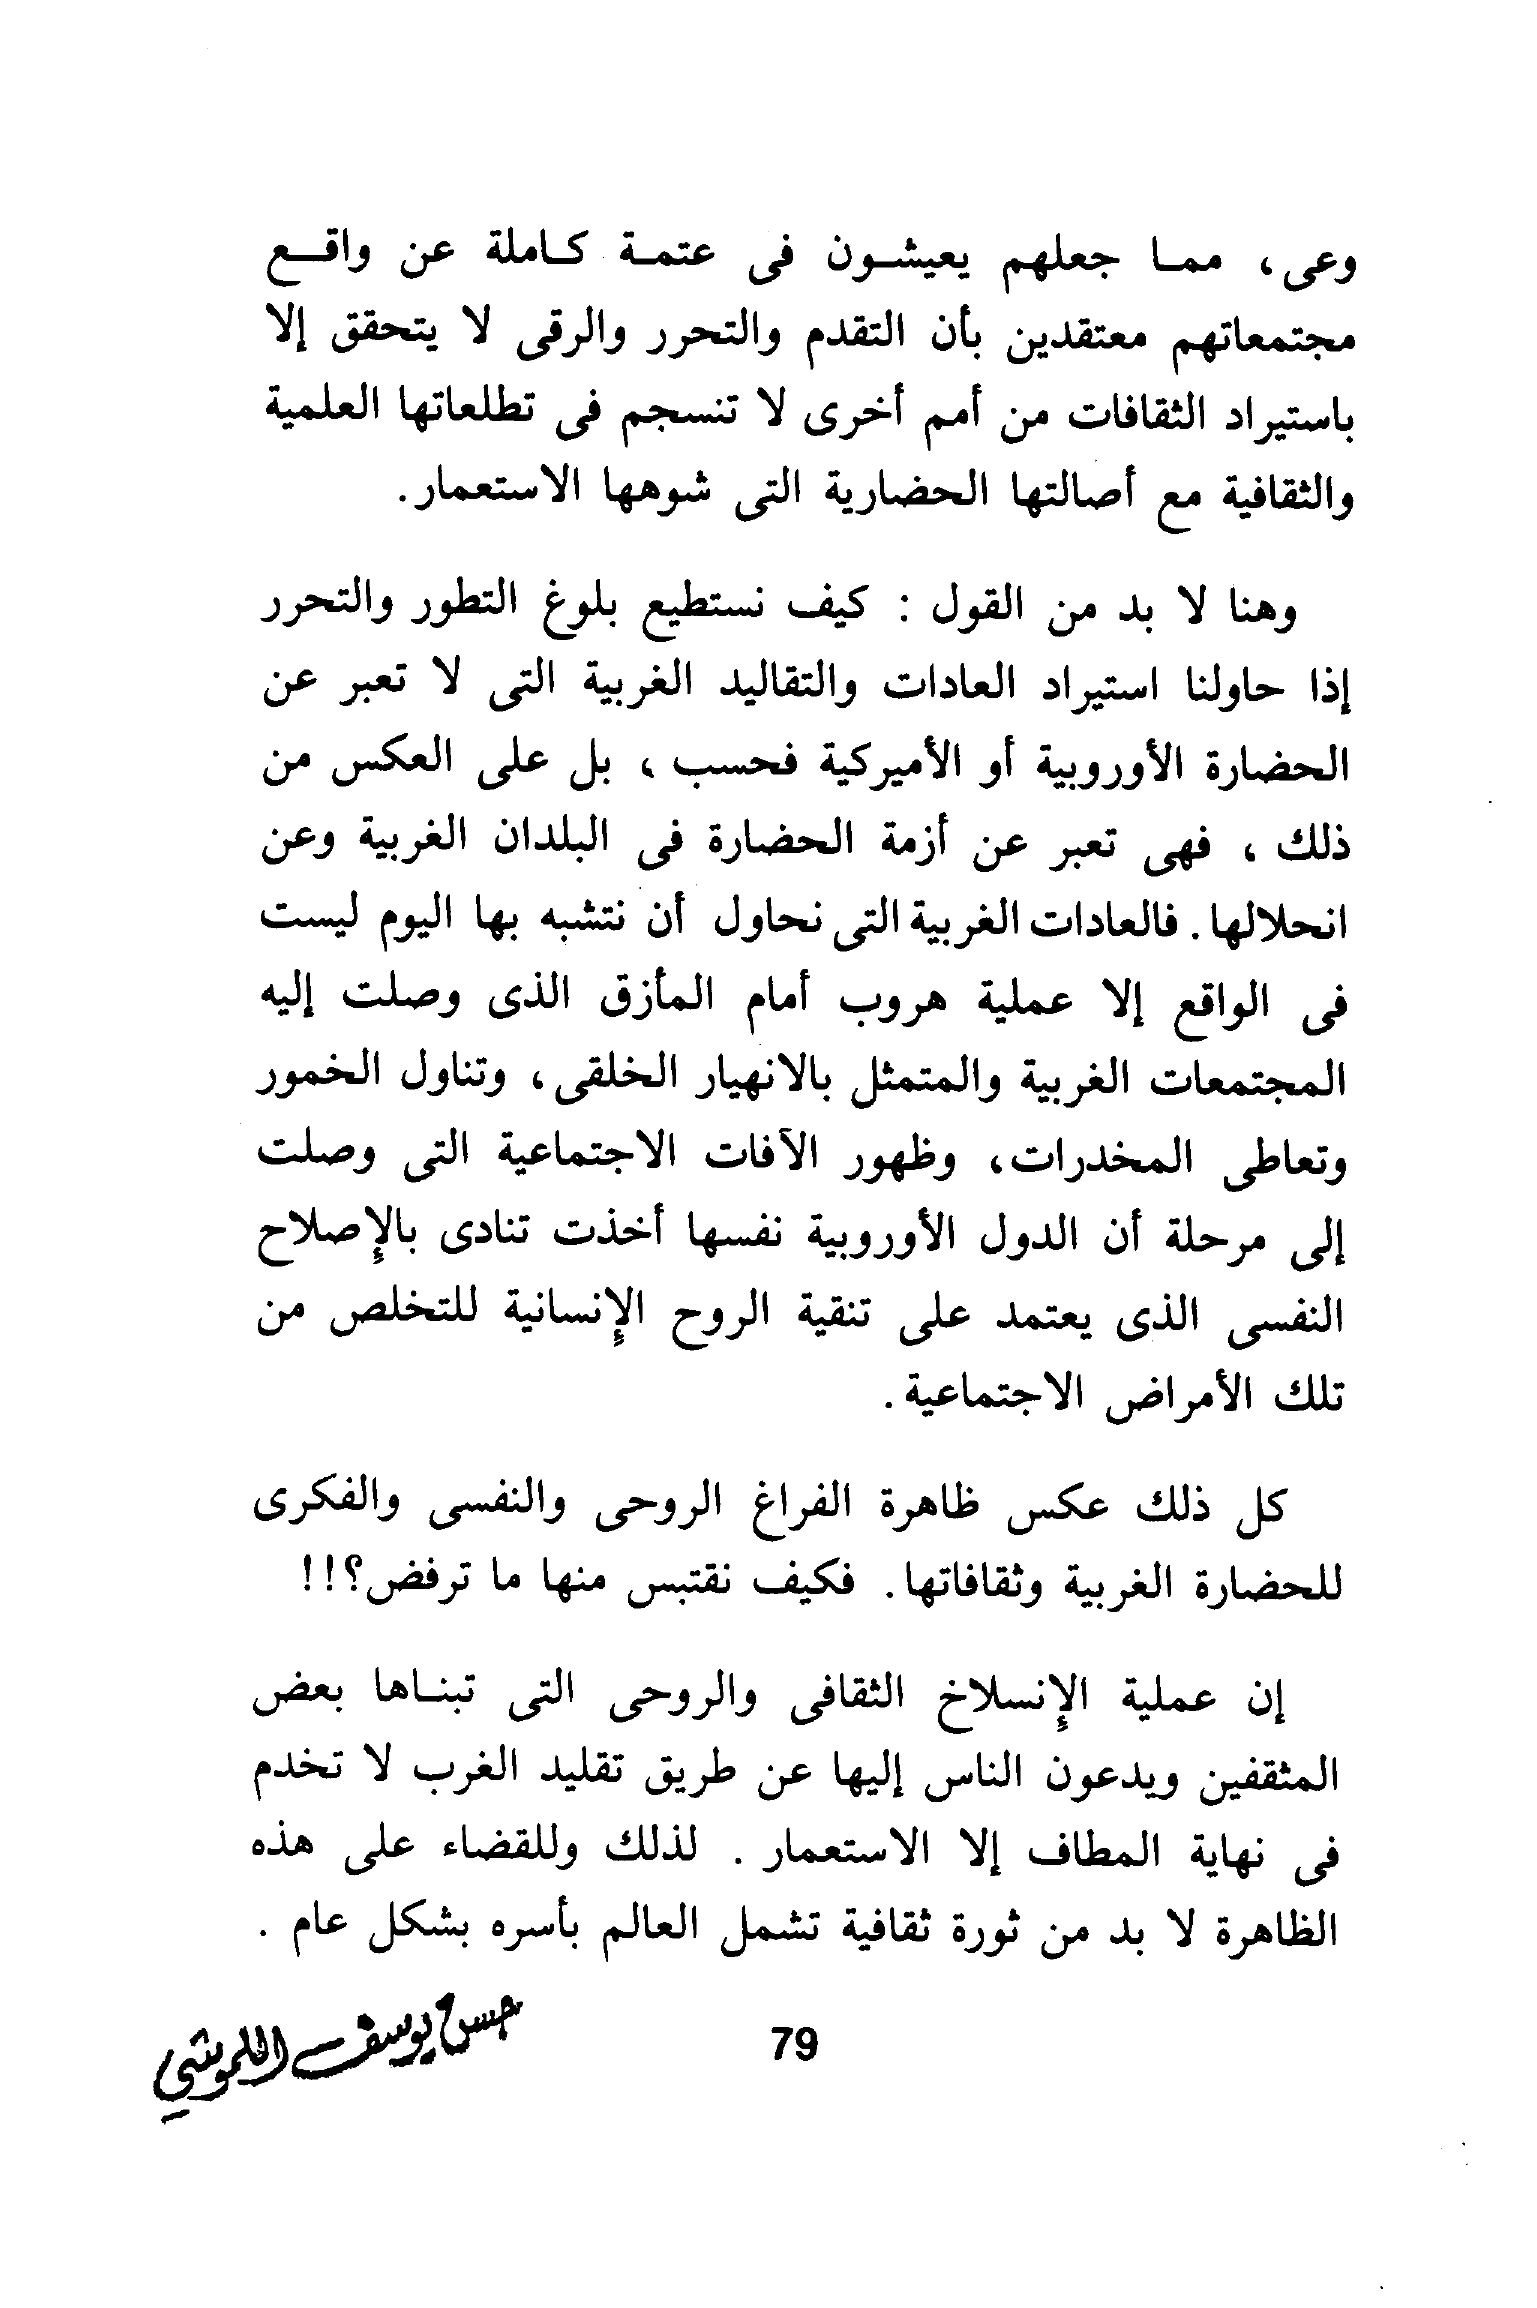 وعى، ممـا جعلهم يعيشـون فى عتمـة كـاملة عن واقـــع
مجتمعاتهم معتقدين بأن التقدم والتحرر والرقى لا يتحقق إلا
باستيراد الثقافات من أمم أخرى لا تنسجم فى تطلعاتها العلمية
والثقافية مع أصالتها الحضارية التى شوهها الاستعمار.
وهنا لا بد من القول : كيف نستطيع بلوغ التطور والتحرر
إذا حاولنا استيراد العادات والتقاليد الغربية التى لا تعبر عن
الحضارة الأوروبية أو الأميركية فحسب ، بل على العكس من
ذلك ، فهى تعبر عن أزمة الحضارة فى البلدان الغربية وعن
انحلالها. فالعادات الغربية التى نحاول أن نتشبه بها اليوم ليست
فى الواقع إلا عملية هروب أمام المأزق الذى وصلت إليه
المجتمعات الغربية والمتمثل بالانهيار الخلقى، وتناول الخمور
وتعاطى المخدرات، وظهور الآفات الاجتماعية التى وصلت
إلى مرحلة أن الدول الأوروبية نفسها أخذت تنادى بالإصلاح
النفسى الذى يعتمد على تنقية الروح الإنسانية للتخلص من
تلك الأمراض الاجتماعية.
كل ذلك عكس ظاهرة الفراغ الروحى والنفسى والفكرى
للحضارة الغربية وثقافاتها. فكيف نقتبس منها ما ترفض؟!!
إن عملية الإنسلاخ الثقافى والروحى التى تبنـاها بعض
المثقفين ويدعون الناس إليها عن طريق تقليد الغرب لا تخدم
فى نهاية المطاف إلا الاستعمار . لذلك وللقضاء على هذه
الظاهرة لا بد من ثورة ثقافية تشمل العالم بأسره بشكل عام .
79
حسن يوسف